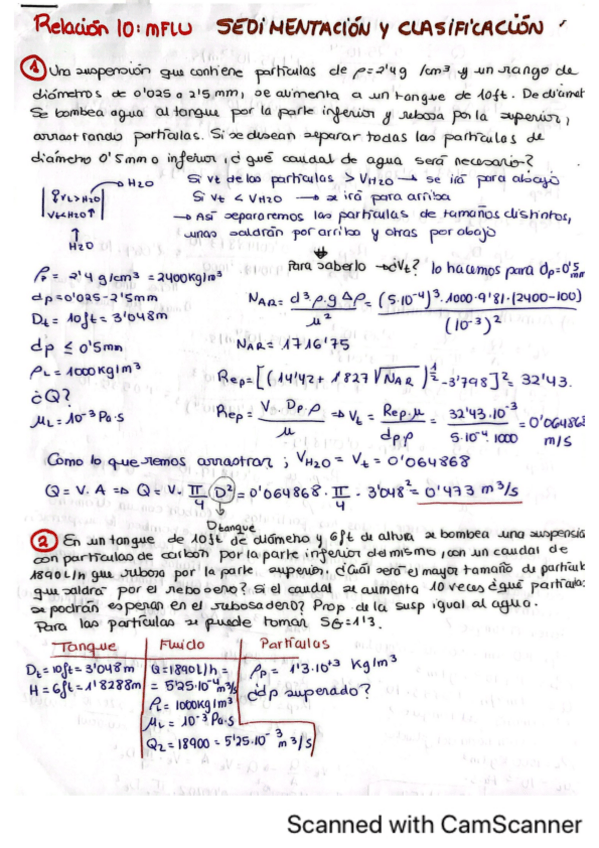 Relación 10: MFLU SEDIMENTACIÓN Y CLASIFICACIÓN
① Una suspensión que contiene partículas de ρ=2'4g/cm³ y un rango de
diámetros de 0'025 a 2'5mm, se alimenta a un tanque de 10ft. De diámet
Se bombea agua al tanque por la parte inferior y rebosa por la superior,
arrastrando partículas. Si se desean separar todas las partículas de
diámetro 0'5mm o inferior, ¿qué caudal de agua será necesario?
→ H₂O
Si vt de las partículas > VH₂O → se irá para abajo
Si vt < VH₂O → se irá para arriba
→ Así separaremos las partículas de tamaños distintos,
unas saldrán por arriba y otras por abajo
↑
H₂O
Para saberlo → ¿Vt? lo hacemos para dp=0'5mm
ρp = 2'4 g/cm³ = 2400kg/m³
dp=0'025-2'5mm
Dt = 10ft = 3'048m
dp ≤ 0'5mm
ρL = 1000kg/m³
¿Q?
μL = 10⁻³ Pa·s
NAR = d³·ρ·g·Δρ / μ² = (5·10⁻⁴)³·1000·9'81·(2400-100) / (10⁻³)²
NAR = 1716'75
Rep = [(14'42 + 1'827 √NAR)^½ - 3'798]² = 32'43.
Rep = V·Dp·ρ / μ ⇒ Vt = Rep·μ / dp·ρ = 32'43·10⁻³ / 5·10⁻⁴·1000 = 0'064868 m/s
Como lo queremos arrastrar; VH₂O = Vt = 0'064868
Q = V·A ⇒ Q = V·π/4 D² = 0'064868·π/4·3'048² = 0'473 m³/s
Dtanque
② En un tanque de 10ft de diámetro y 6ft de altura se bombea una suspensió
con partículas de carbón por la parte inferior del mismo, con un caudal de
1890L/h que rebosa por la parte superior. ¿Cuál será el mayor tamaño de partícul
que saldrá por el rebosadero? Si el caudal se aumenta 10 veces ¿qué partícula
se podrán esperar en el rebosadero? Prop. de la susp igual al agua.
Para las partículas se puede tomar SG=1'3.
Tanque Fluido Partículas
Dt=10ft=3'048m Q=1890L/h = ρp = 1'3·10⁺³ Kg/m³
H=6ft=1'8288m = 5'25·10⁻⁴ m³/s ¿dp superado?
ρL = 1000kg/m³
μL = 10⁻³ Pa·s
Q₂ = 18900 = 5'25·10⁻³ m³/s
Scanned with CamScanner